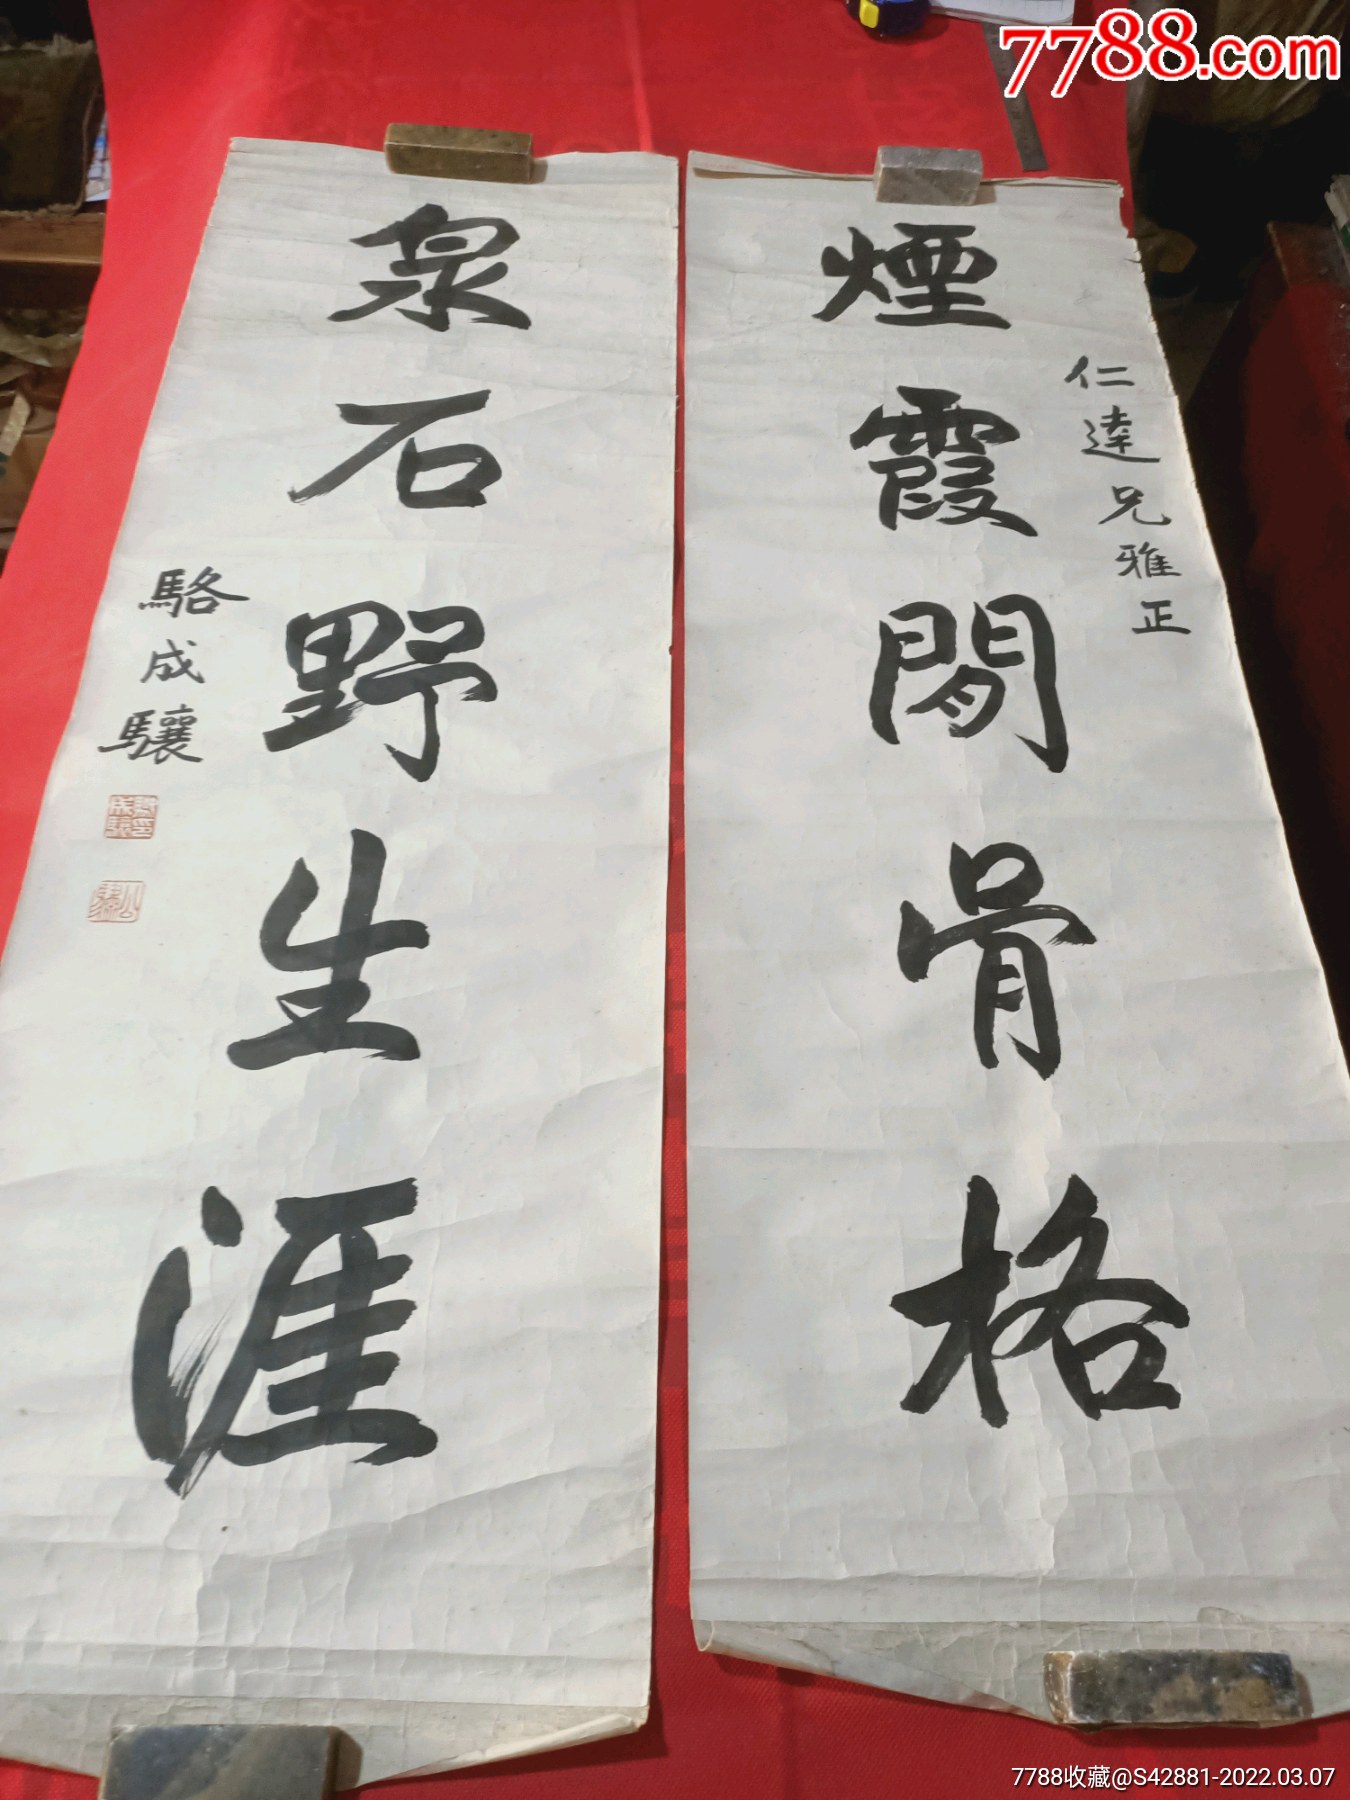 7788.com
仁達兄雅正
煙霞閒骨格
泉石野生涯
駱成驤
7788收藏@S42881-2022.03.07